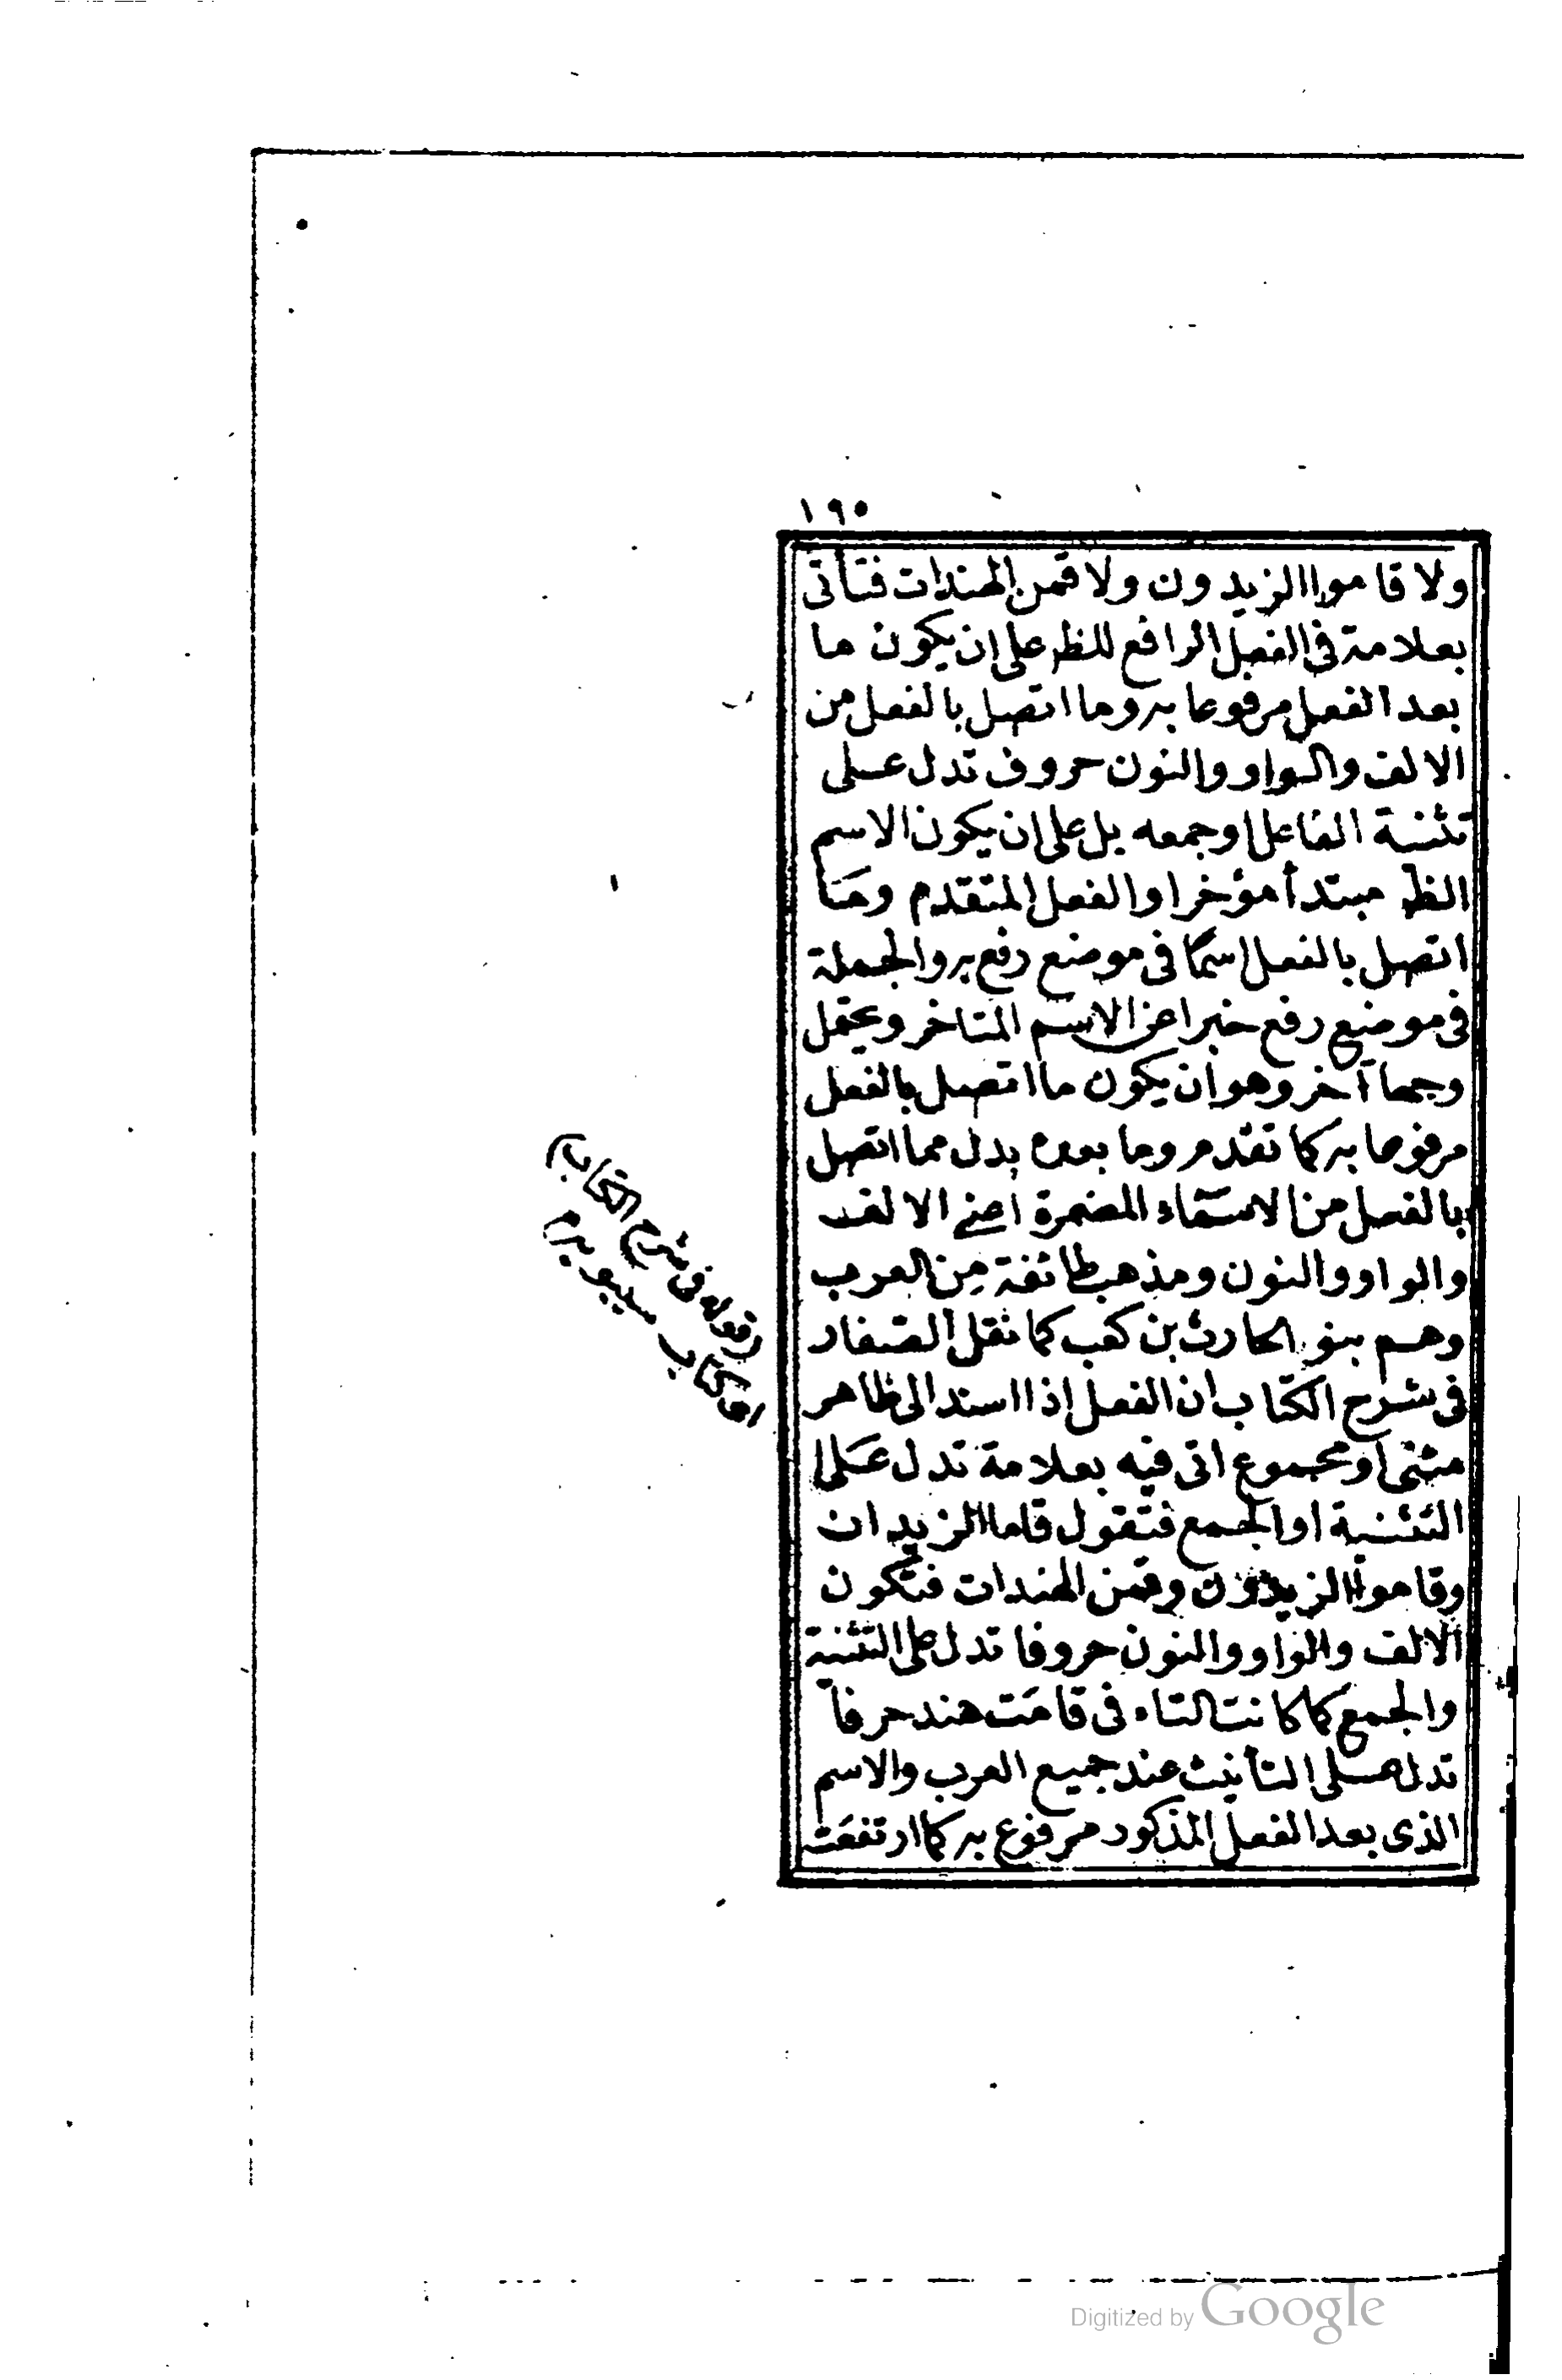 ١٩٥
ولا قاموا الزيدون ولا قمن الهندات فتأتى
بعلامة فى الفعل الرافع للظ على ان يكون ما
بعد الفعل مرفوعا به وما اتصل بالفعل من
الالف والواو والنون حروف تدل على
تثنية الفاعل او جمعه بل على ان يكون الاسم
الظ مبتدأ مؤخرا والفعل المتقدم وما
اتصل بالفعل اسما فى موضع رفع به والجملة
فى موضع رفع خبرا عن الاسم المتاخر ويحتمل
وجها آخر وهو ان يكون ما اتصل بالفعل
مرفوعا به كما تقدم وما بعده بدل مما اتصل
بالفعل من الاسماء المضمرة اعنى الالف
والواو والنون ومذهب طائفة من العرب
وهم بنو الحارث بن كعب كما نقل الصفار
فى شرح الكتاب ان الفعل اذا اسند الى ظاهر
مثنى او مجموع اتى فيه بعلامة تدل على
التثنية او الجمع فتقول قاما الزيدان
وقاموا الزيدون وقمن الهندات فتكون
الالف والواو والنون حروفا تدل على التثنية
والجمع كما كانت التاء فى قامت هند حرفا
تدل على التأنيث عند جميع العرب والاسم
الذى بعد الفعل المذكور مرفوع به كما ارتفعت
(قوله فى شرح الكتاب)
اى كتاب سيبويه م
Digitized by Google